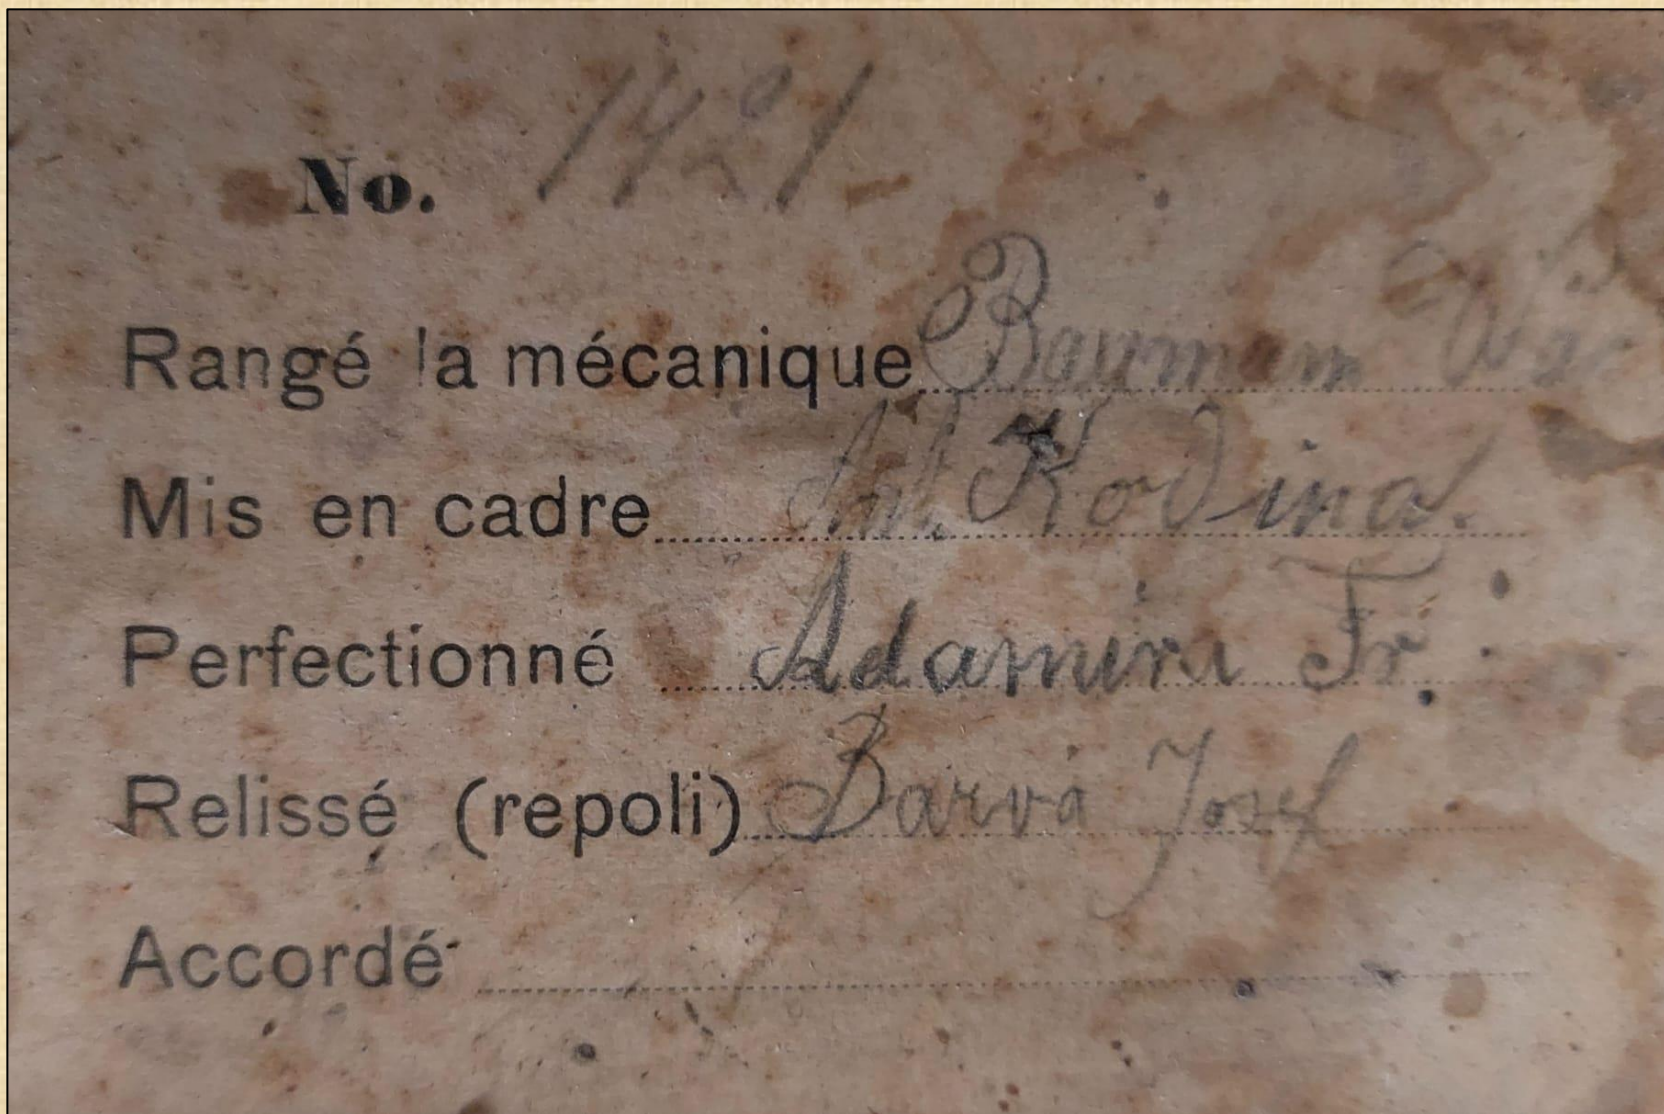 No. 1421
Rangé la mécanique Baumann
Mis en cadre Ant. Kodina.
Perfectionné Adamira Fr.
Relissé (repoli) Barva Josef
Accordé